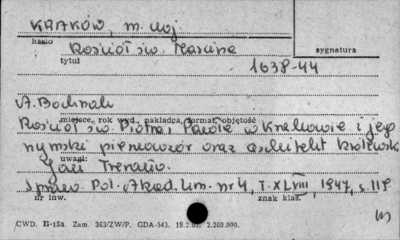 KRAKÓW, m. woj.
hasło
Kościół św. Marcina
tytuł
sygnatura
1638-44
A. Bochnak
miejsce, rok wyd., nakładca, format, objętość
Kościół św. Piotra i Pawła w Krakowie i jego
rzymski pierwowzór oraz architekt królewski
uwagi:
Jan Trevano.
Spraw. Pol. Akad. Um. nr 4, T. XLVIII, 1947, s. 118
nr inw.
znak klas.
CWD. B-15a. Zam. 363/ZW/P. GDA-543. 19.2.62. 2.260.000.